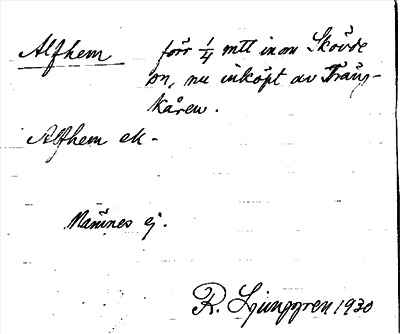 Alfhem förr 1/4 mtl inom Skövde
sn, nu inköpt av Träng-
kåren.
Alfhem ek -
Namnes ej.
R. Ljunggren 1930